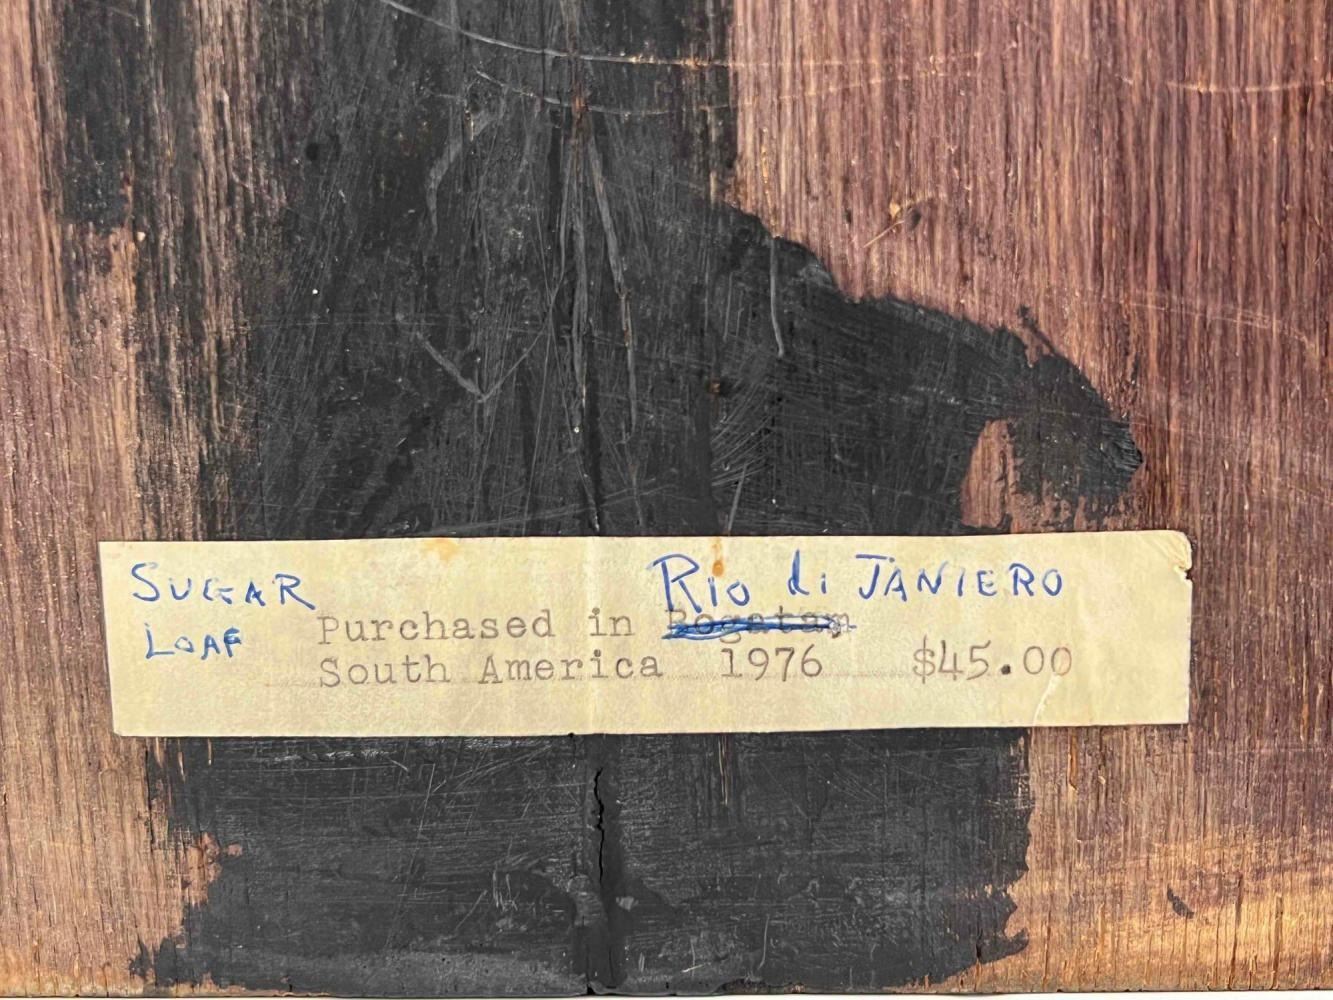 SUGAR Rio di JANIERO
LOAF Purchased in Bogatam
South America 1976 $45.00